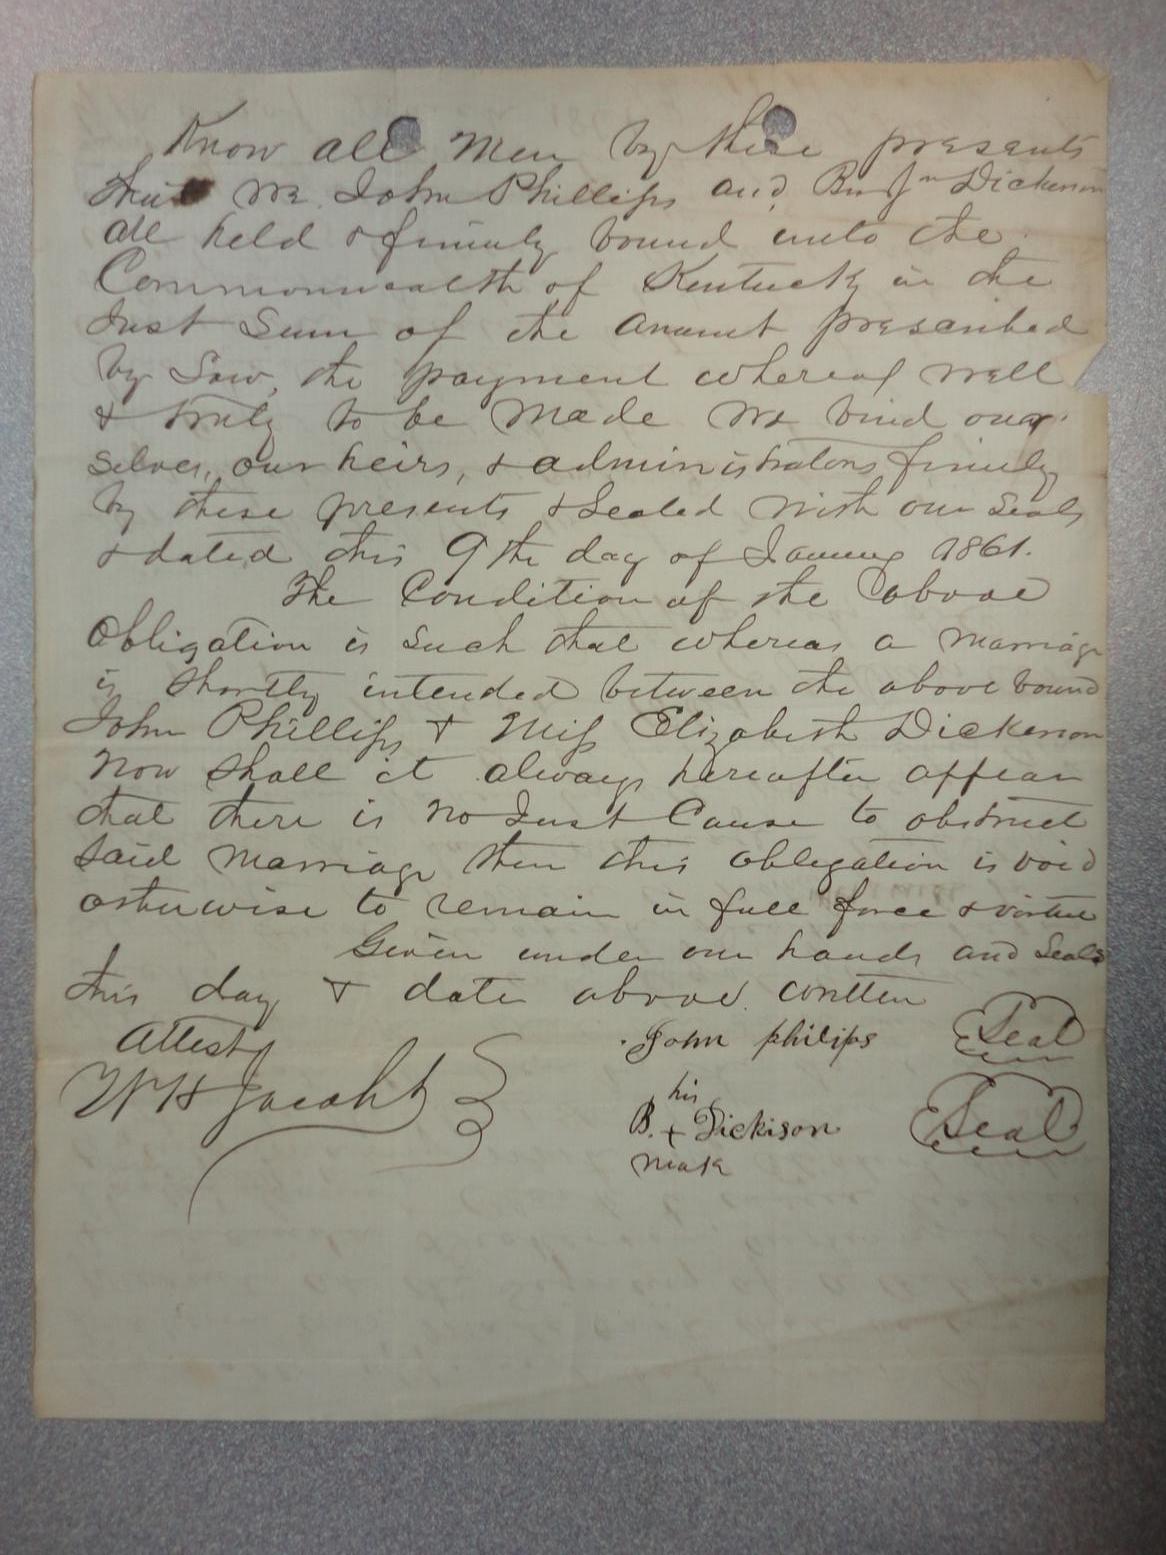 Know all Men by these presents
that we John Phillips and Benjn Dickerson
are held & firmly bound unto the
Commonwealth of Kentucky in the
Just Sum of the amount prescribed
by Law, the payment whereof well
& truly to be made we bind our
selves, our heirs, & administrators firmly
by these presents & Sealed with our Seals
& dated this 9th day of January 1861.
The Condition of the above
Obligation is such that whereas a marriage
is shortly intended between the above bound
John Phillips & Miss Elizabeth Dickerson
Now shall it always hereafter appear
that there is no Just Cause to obstruct
said marriage then this obligation is void
otherwise to remain in full force & virtue
Given under our hands and Seals
this day & date above written
Attest John philips Seal
W H his
B. + Dickison Seal
mark